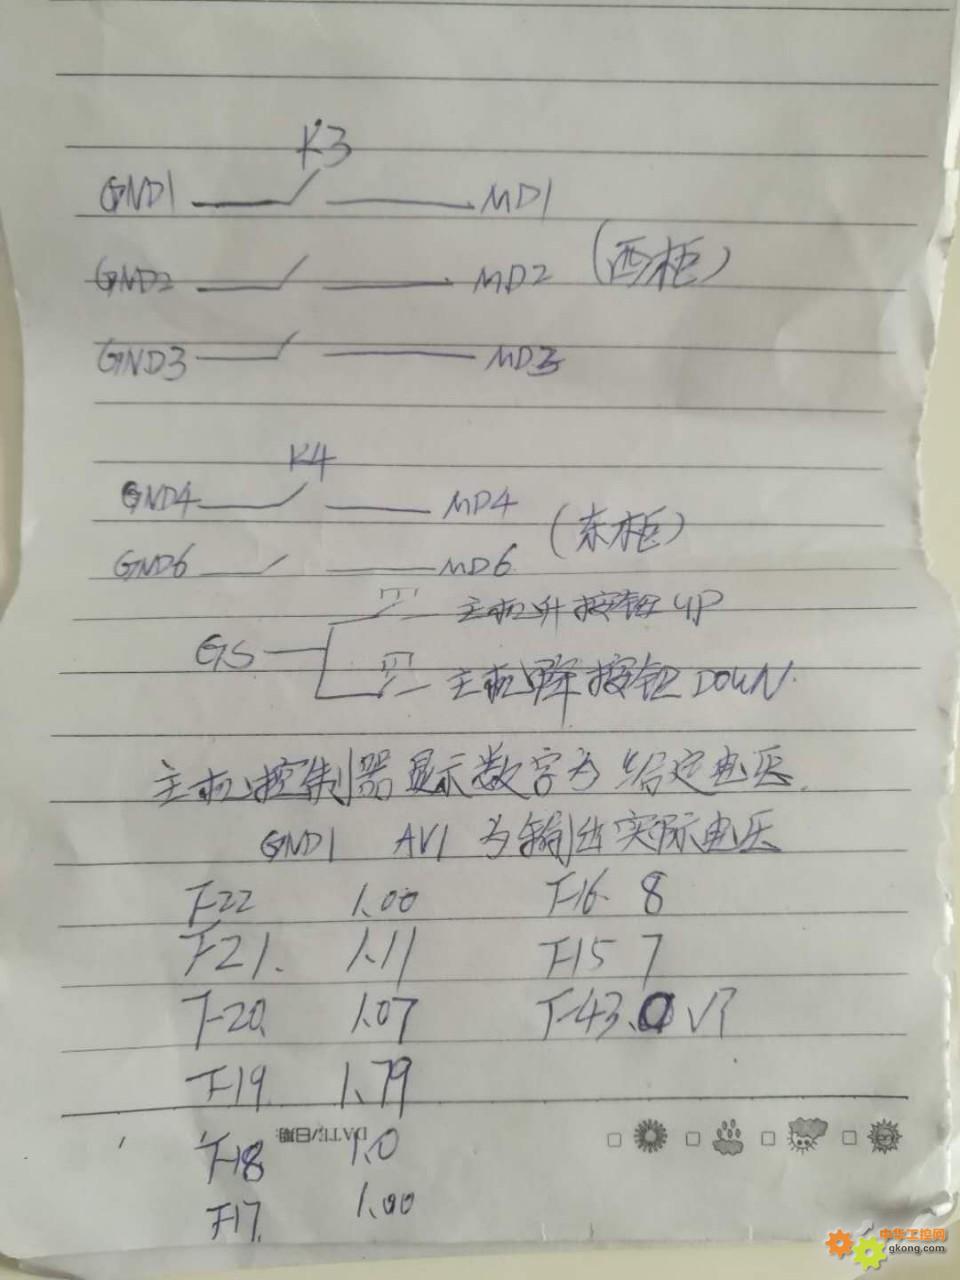 K3
GND1 MD1
GND2 MD2 (西柜)
GND3 MD3
K4
GND4 MD4
(东柜)
GND6 MD6
主机升按钮 UP
GS
主机降按钮 DOWN.
主机控制器显示数字为给定电压.
GND1 AV1 为输出实际电压
F22 1.00 F16. 8
F21. 1.11 F15 7
F20. 1.07 F43.
F19. 1.79
DATE/日期:
F18 1.0
F17. 1.00
中华工控网
gkong.com